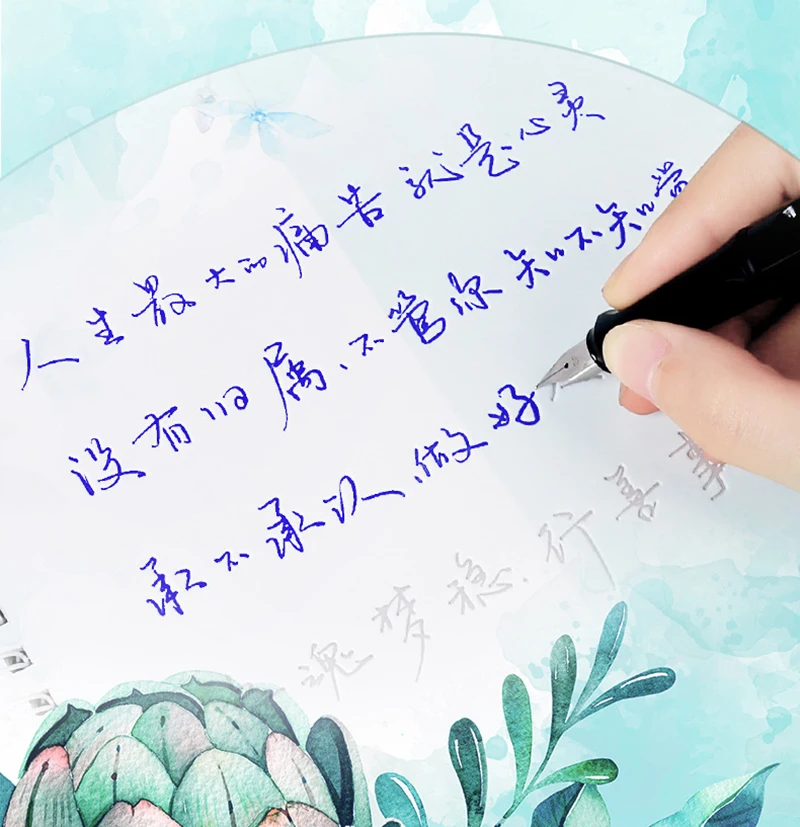 人生最大的痛苦就是心灵
没有归属、不管你知不知觉
承不承认、做好人
魂梦稳.行善事